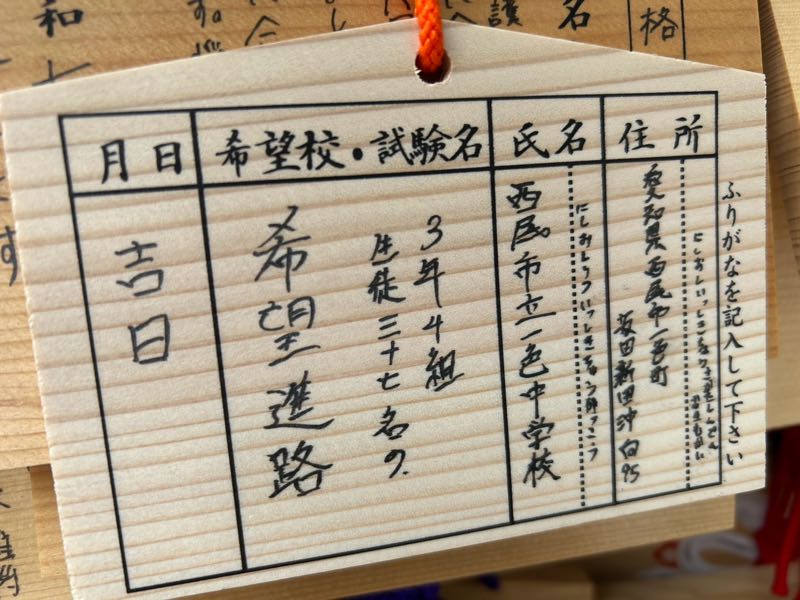 ふりがなを記入して下さい
住所
愛知県西尾市一色町
坂田新田沖向95
氏名
にしおしりついっしきちゅうがっこう
西尾市立一色中学校
希望校・試験名
3年4組
生徒三十七名の
希望進路
月日
吉日
格
名
和
す